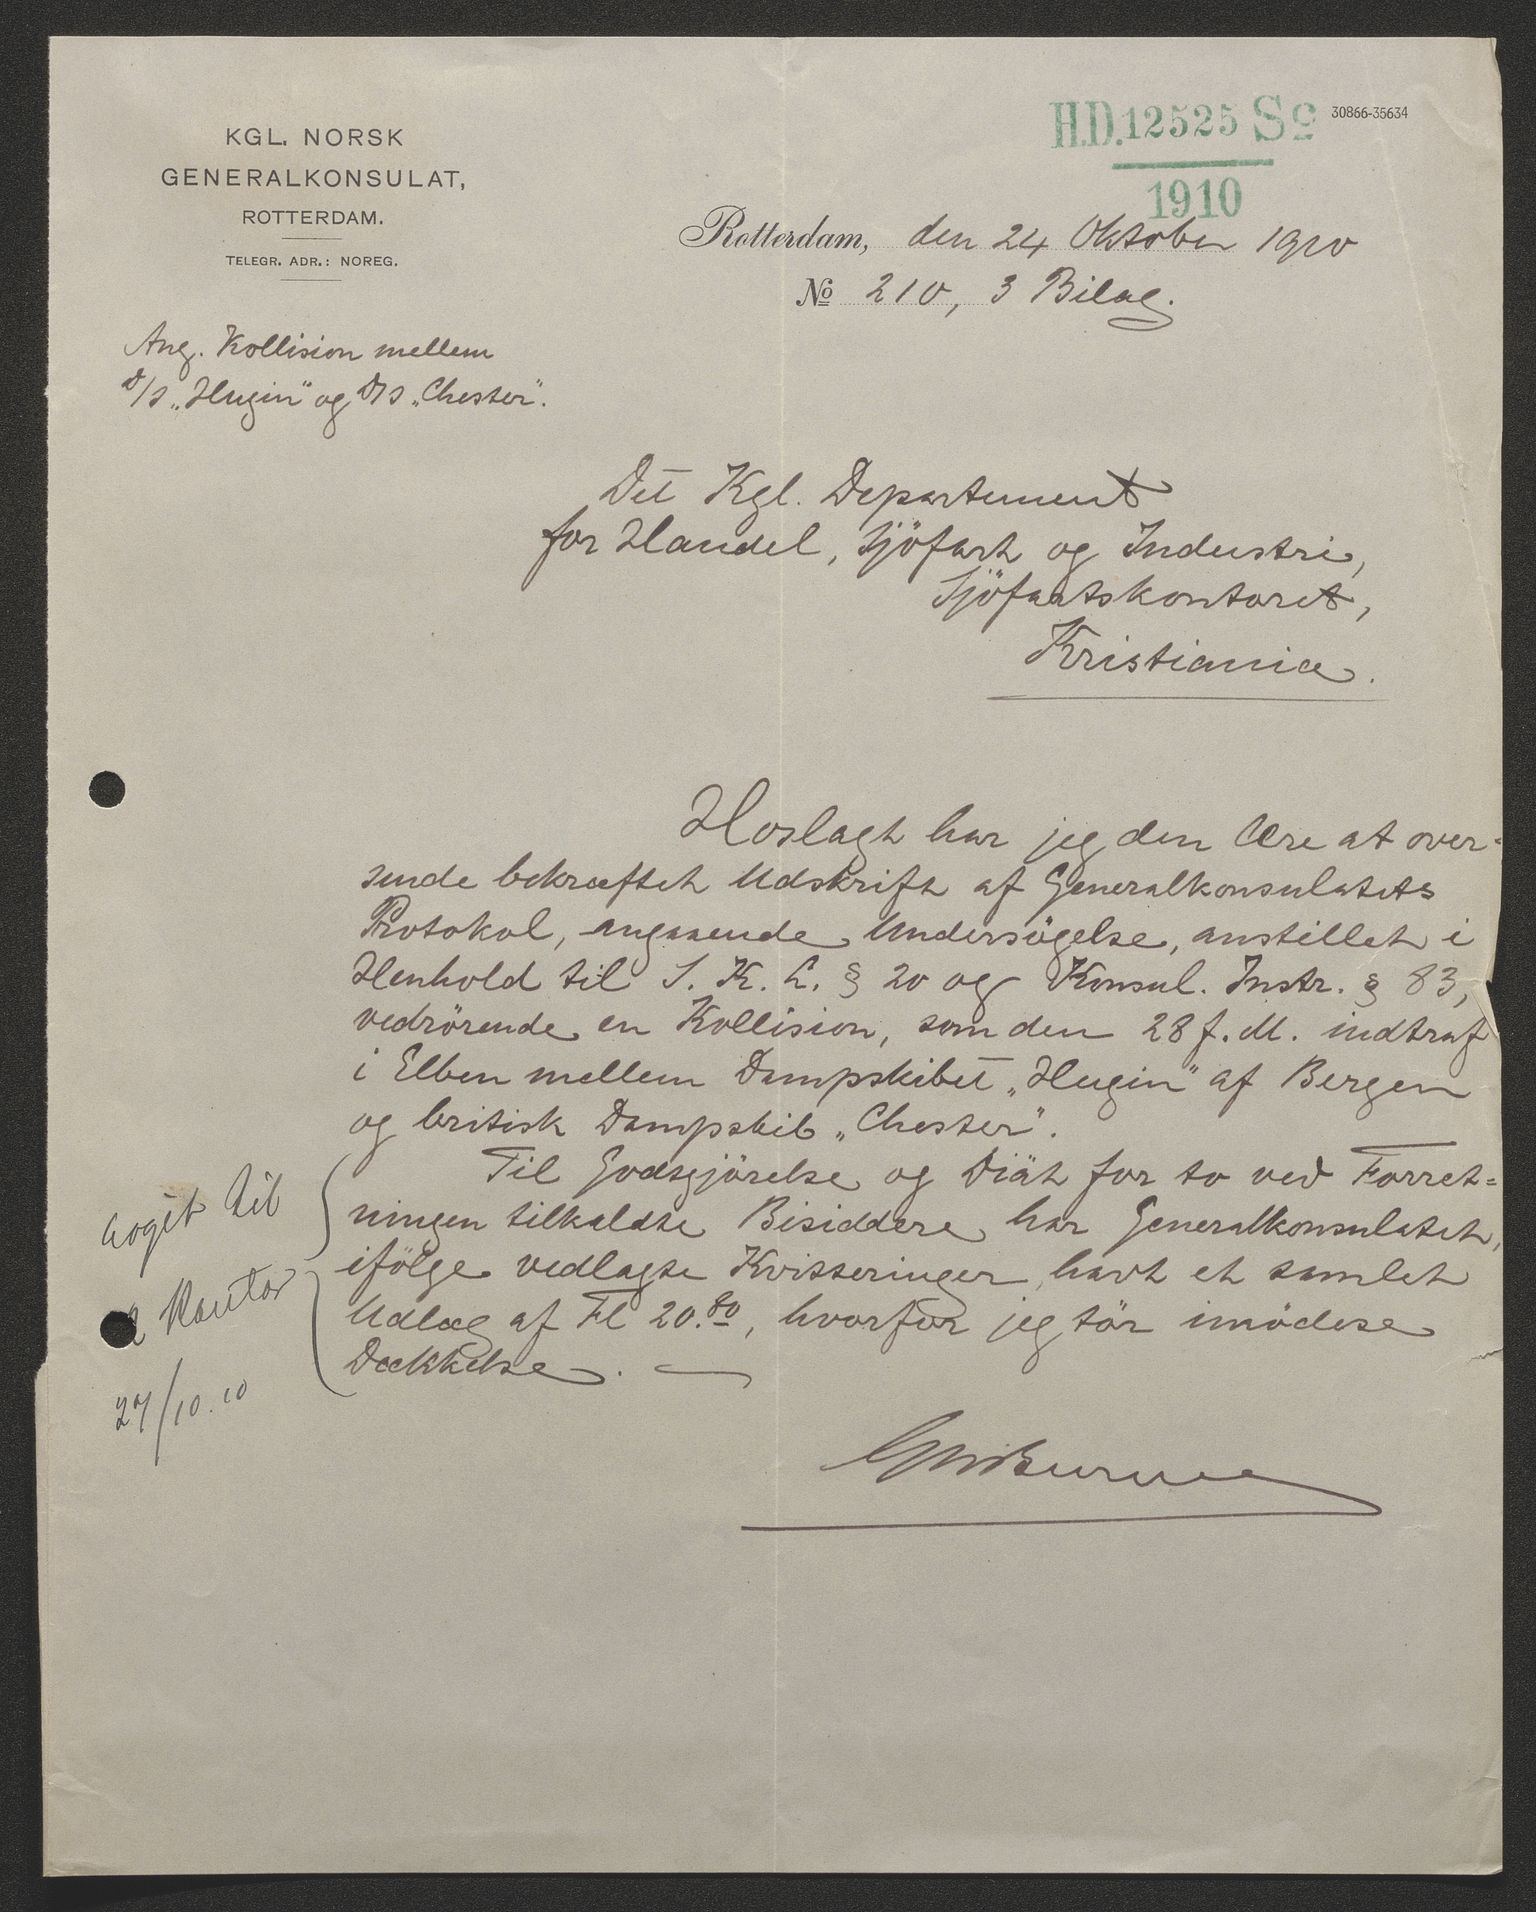 H.D. 12525 Sc
1910
30866-35634
KGL. NORSK
GENERALKONSULAT,
ROTTERDAM.
TELEGR. ADR.: NOREG.
Rotterdam, den 24 Oktober 1910
No 210, 3 Bilag.
Ang. Kollision mellem
D/S „Hugin" og D/S „Chester".
Det Kgl. Departement
for Handel, Sjöfart og Industri,
Sjöfartskontoret,
Kristiania.
Hoslagt har jeg den Ære at over-
sende bekræftet Udskrift af Generalkonsulatets
Protokol, angaaende Undersögelse, anstillet i
Henhold til S. K. L. § 20 og Konsul. Instr. § 83,
vedrörende en Kollision, som den 28 f. M. indtraf
i Elben mellem Dampskibet „Hugin" af Bergen
og britisk Dampskib „Chester".
Til Godtgjörelse og Diät for to ved Forret=
ningen tilkaldte Bisiddere har Generalkonsulatet,
ifölge vedlagte Kvitteringer, havt et samlet
Udlæg af Fl 20.80, hvorfor jeg tör imödese
Dækkelse.
til
Kontor
27/10.10